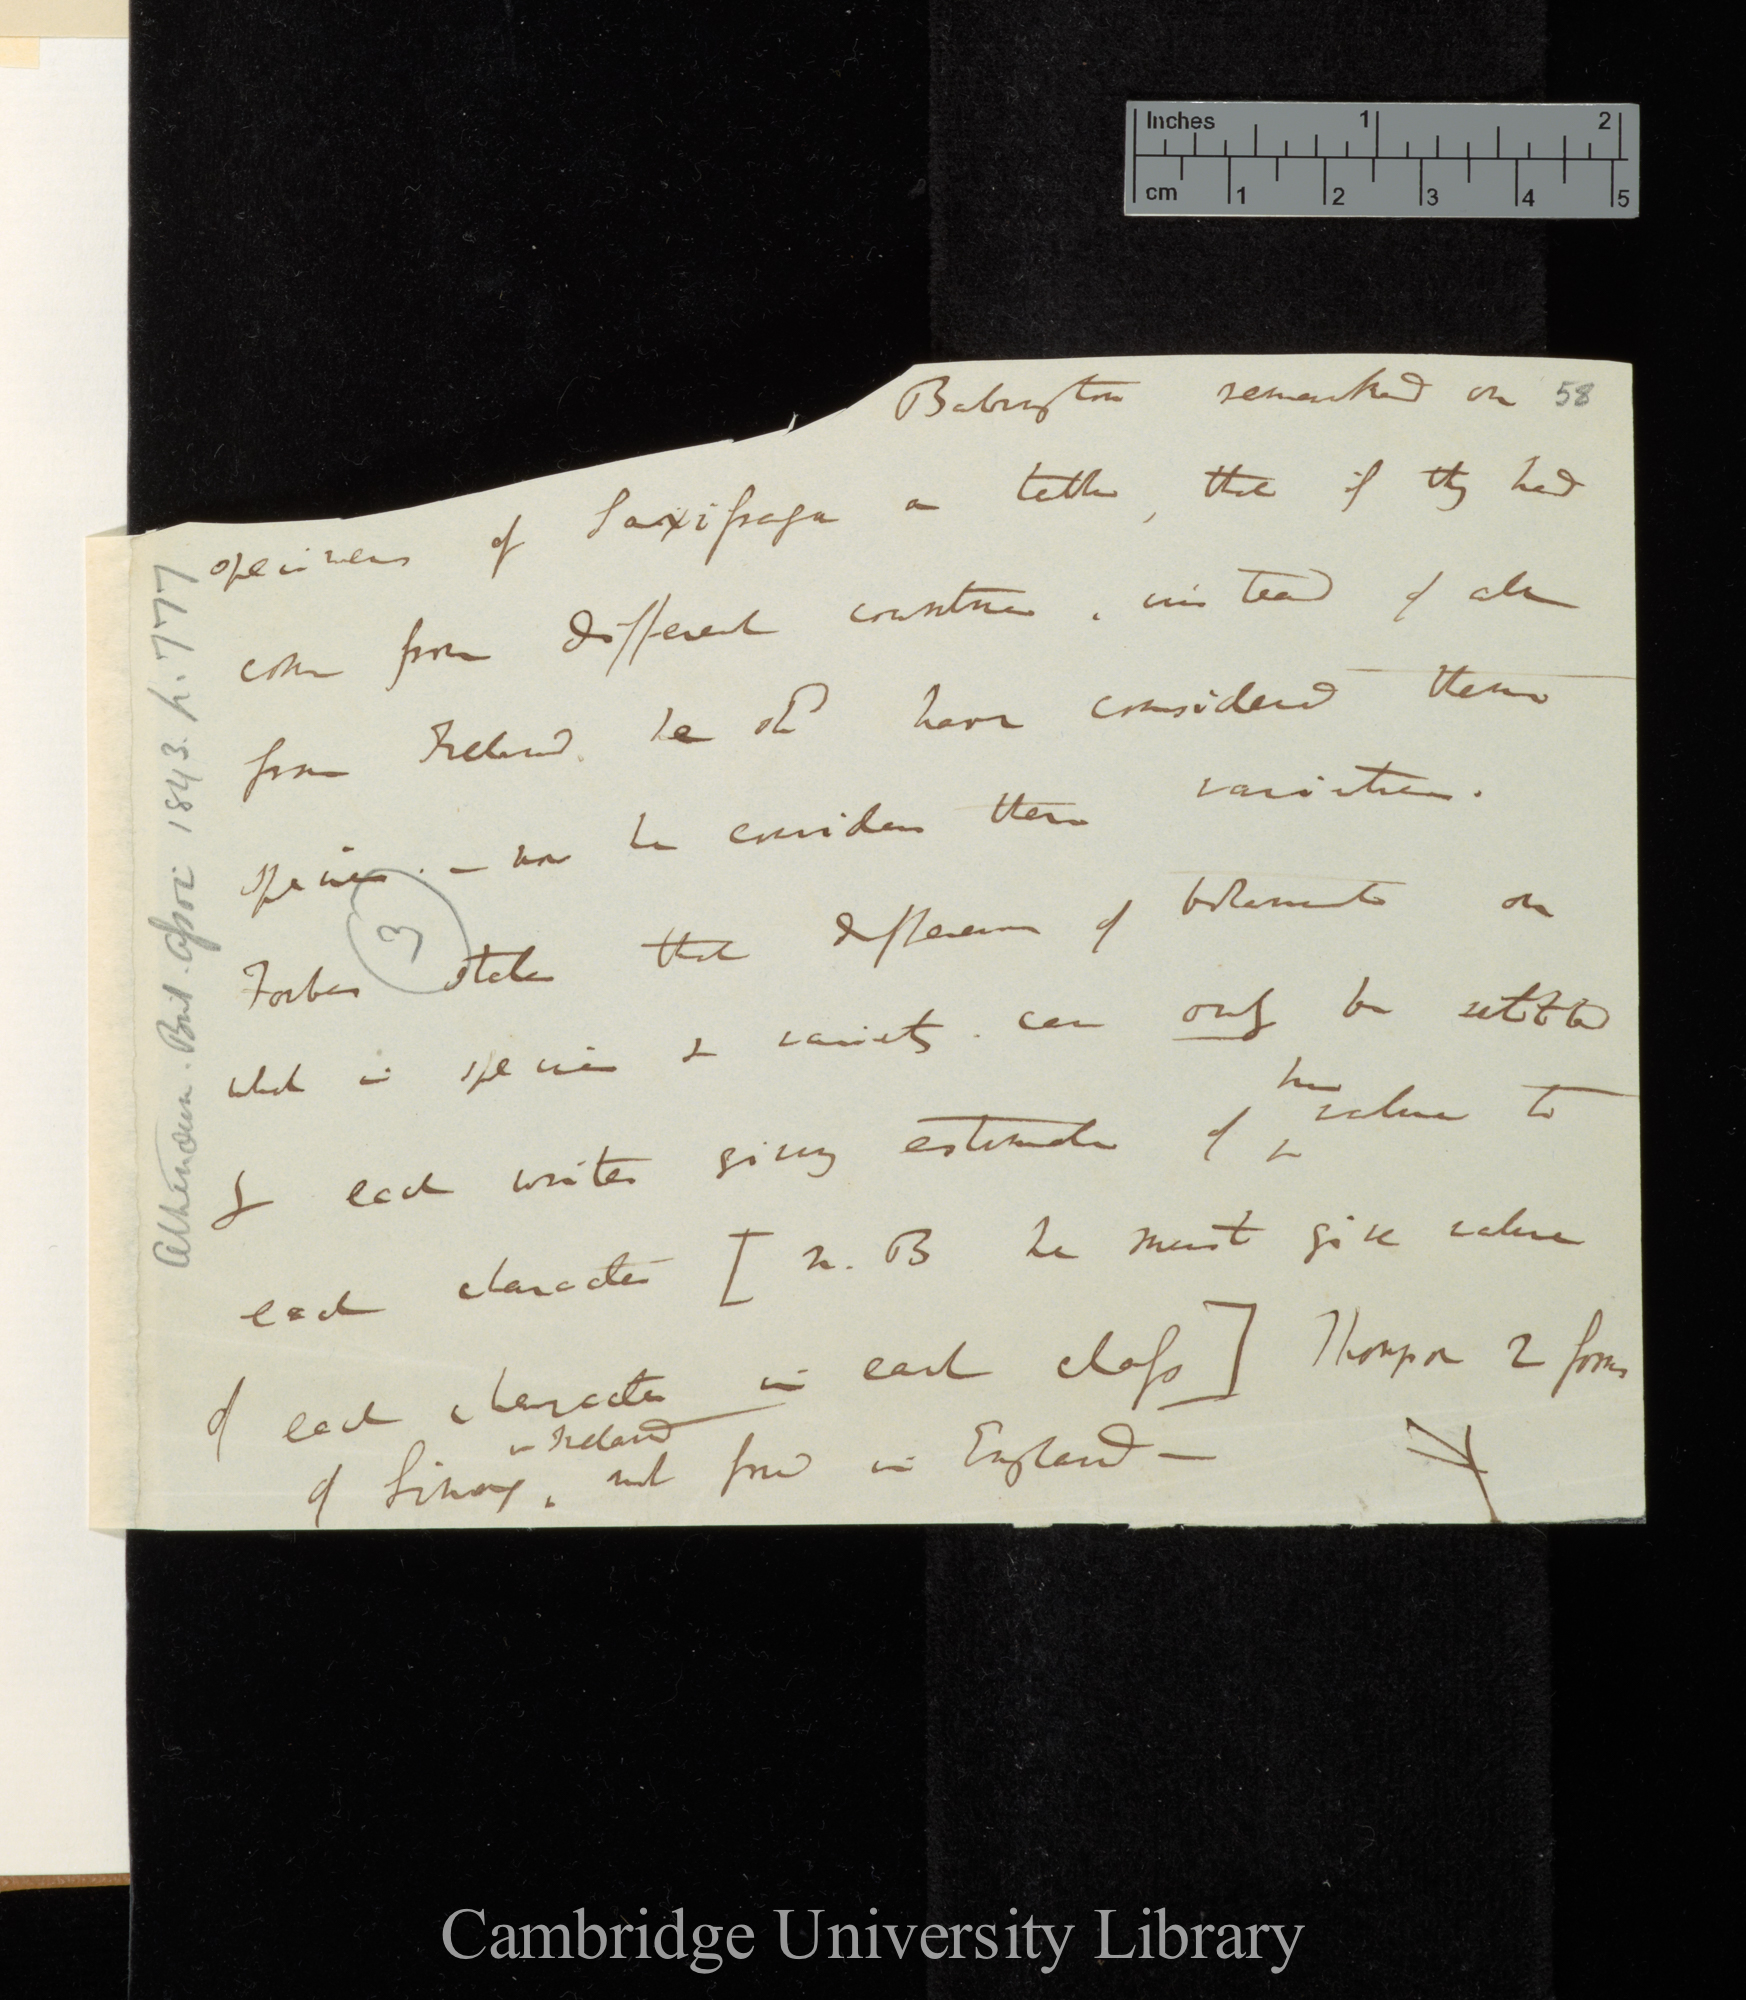 Inches 1 2
cm 1 2 3 4 5
Babington remarked on 58
specimens of Saxifraga on table, that if they had
come from different countries, instead of all
from Ireland. he shd have considered them
species. — now he considers them varieties.
Forbes states that difference of botanists on
what is species & variety. can only be settled
by each writer giving estimate of his value to
each character [N.B he must give value
of each character in each class] Thompson 2 forms
of in Ireland, not found in England —
Athenæum. Brit. Assoc 1843. p. 777
3
Cambridge University Library